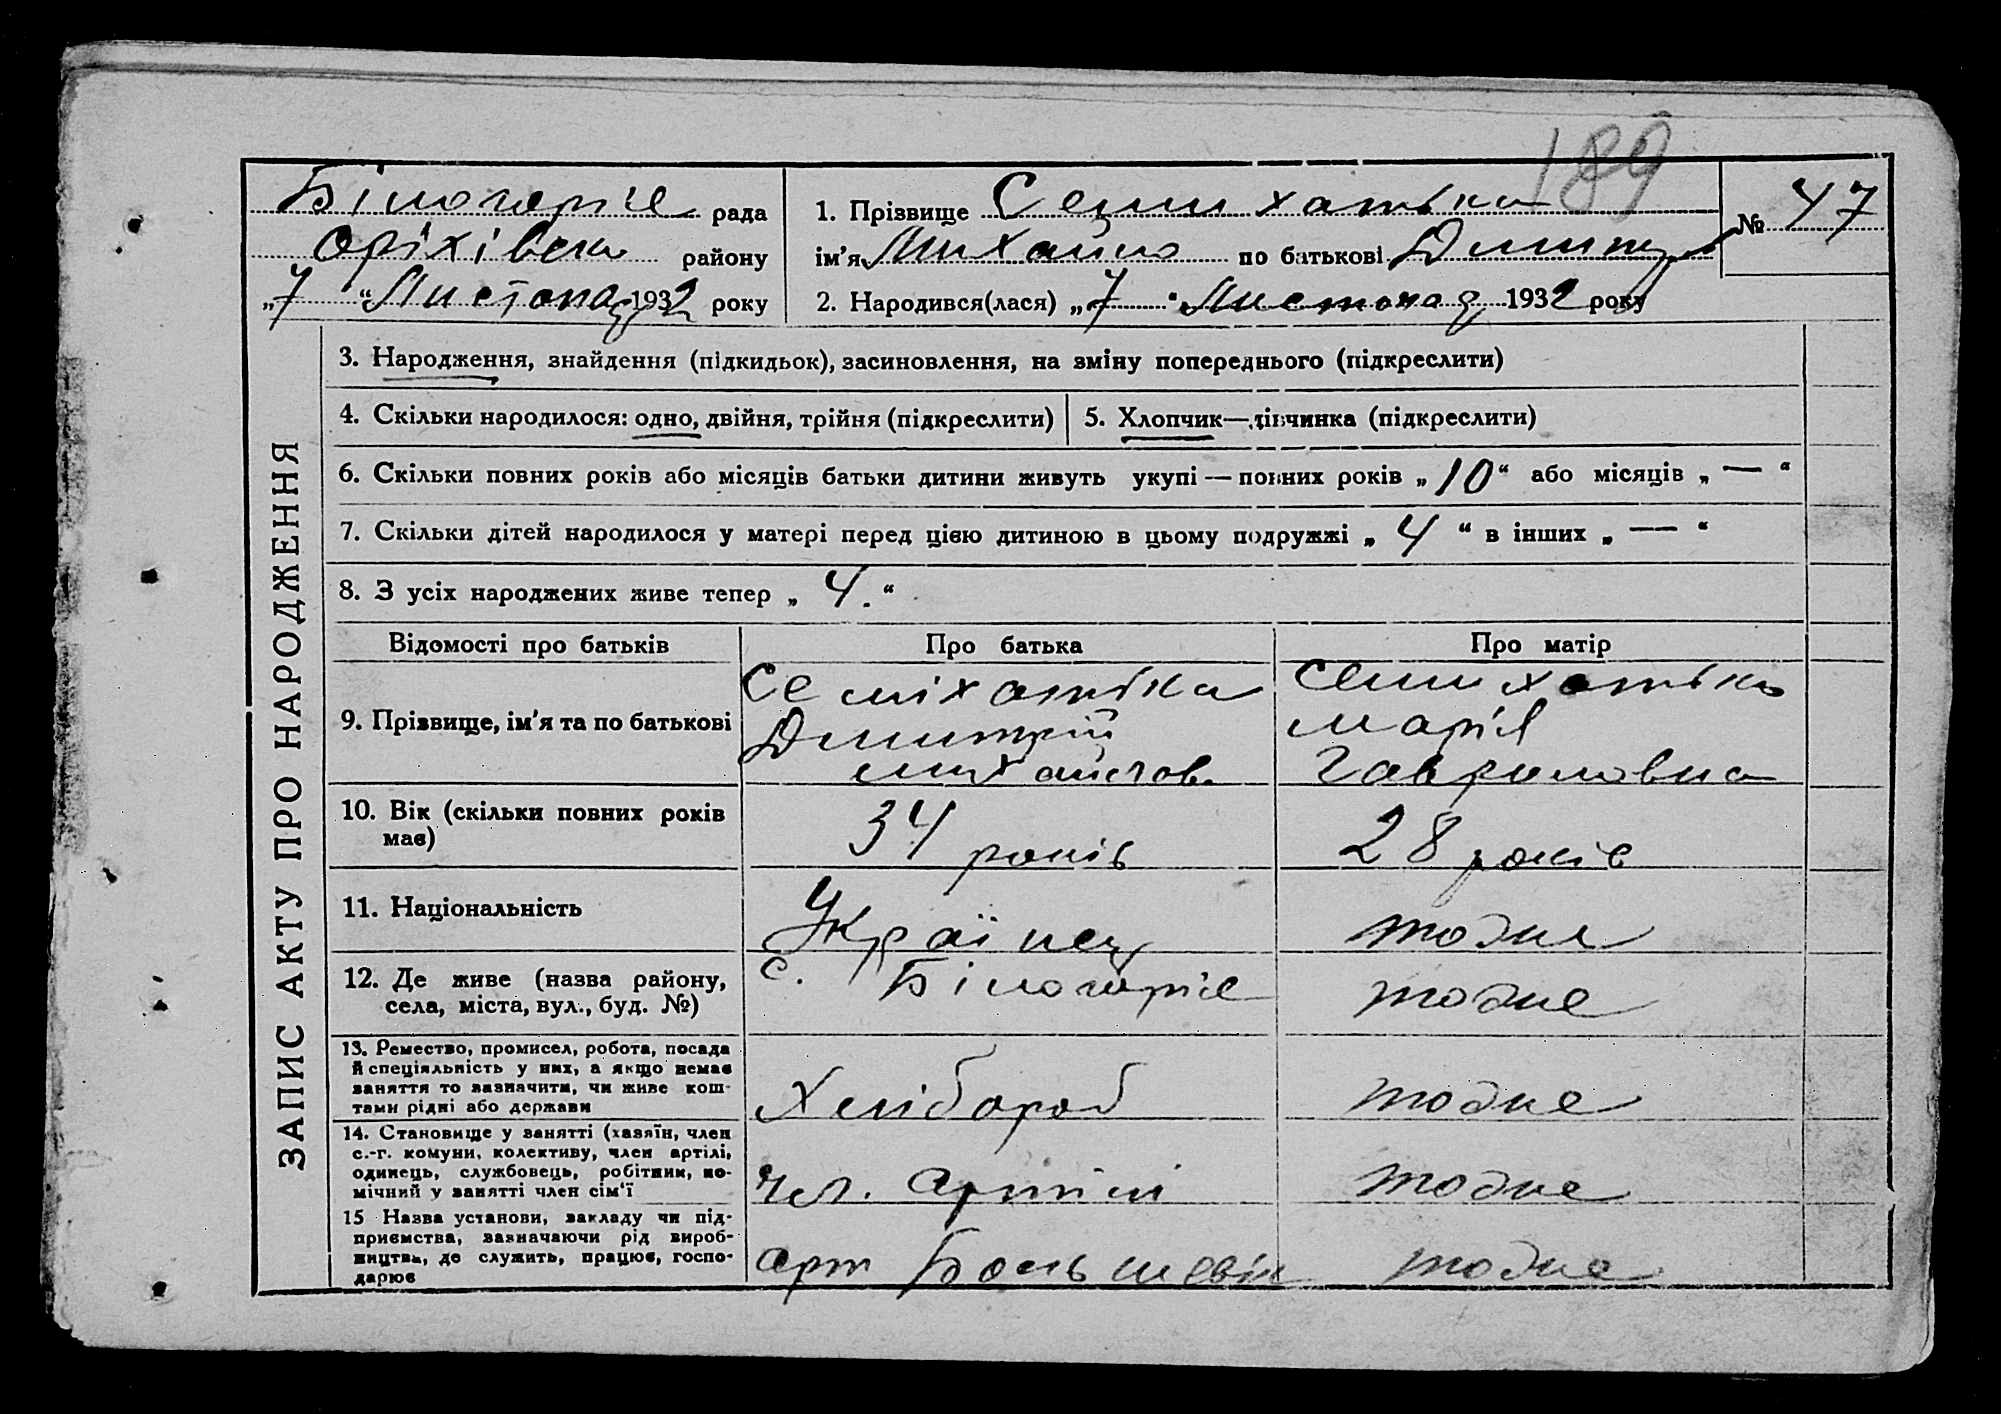 189
Білогоріє рада
Оріхівськ району
„7 “ Листопад 1932 року
1. Прізвище Семихатька
ім'я Михайло по батькові Дмитр
2. Народився(лася) „7 “ Листопад 1932 року
№ 47
ЗАПИС АКТУ ПРО НАРОДЖЕННЯ
3. Народження, знайдення (підкидьок), засиновлення, на зміну попереднього (підкреслити)
4. Скільки народилося: одно, двійня, трійня (підкреслити)
5. Хлопчик—дівчинка (підкреслити)
6. Скільки повних років або місяців батьки дитини живуть укупі — повних років „ 10 “ або місяців „ — “
7. Скільки дітей народилося у матері перед цією дитиною в цьому подружжі „ 4 “ в інших „ — “
8. З усіх народжених живе тепер „ 4. “
Відомості про батьків Про батька Про матір
9. Прізвище, ім'я та по батькові
Семіхатька
Дмитрій
михайлов.
Семихатька
марія
Гавриловна
10. Вік (скільки повних років
має)
34 років
28 років
11. Національність
Українец
тодне
12. Де живе (назва району,
села, міста, вул., буд. №)
с. Білогоріє
тодне
13. Ремество, промисел, робота, посада
й спеціяльність у них, а якщо немає
заняття то зазначити, чи живе кош-
тами рідні або держави
Хлібороб
тодне
14. Становище у занятті (хазяїн, член
с.-г. комуни, колективу, член артілі,
одинець, службовець, робітник, по-
мічний у занятті член сім'ї
чл. артілі
тодне
15 Назва установи, закладу чи під-
приємства, зазначаючи рід вироб-
ництва, де служить, працює, госпо-
дарює
арт Большевік
тодне